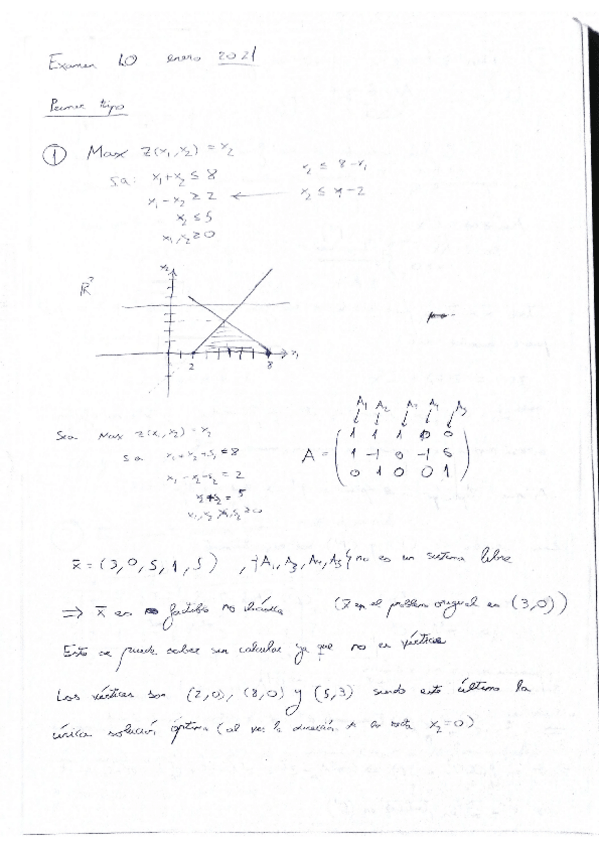 Examen LO enero 2021
Primer tipo
① Max Z(x₁,x₂) = x₂
s.a: x₁+x₂ ≤ 8
x₂ ≤ 8-x₁
x₁-x₂ ≥ 2
x₂ ≤ x₁-2
x₂ ≤ 5
x₁,x₂ ≥ 0
ℝ²
x₂
x₁
2
8
A₁ A₂ A₃ A₄ A₅
Sea Max Z(x₁,x₂) = x₂
s.a x₁+x₂+s₁ = 8
x₁-x₂-s₂ = 2
= 5
A =
1 1 1 0 0
1 -1 0 -1 0
0 1 0 0 1
x̄ = (3,0,5,1,5) , {A₁,A₃,A₄,A₅} no es un sistema libre
⇒ x̄ es factible no básica (x̄ en el problema original es (3,0))
Esto se puede saber sin calcular ya que no es vértice
Los vértices son (2,0), (8,0) y (5,3) siendo este último la
única solución óptima (al ver la dirección a la recta x₂=0)